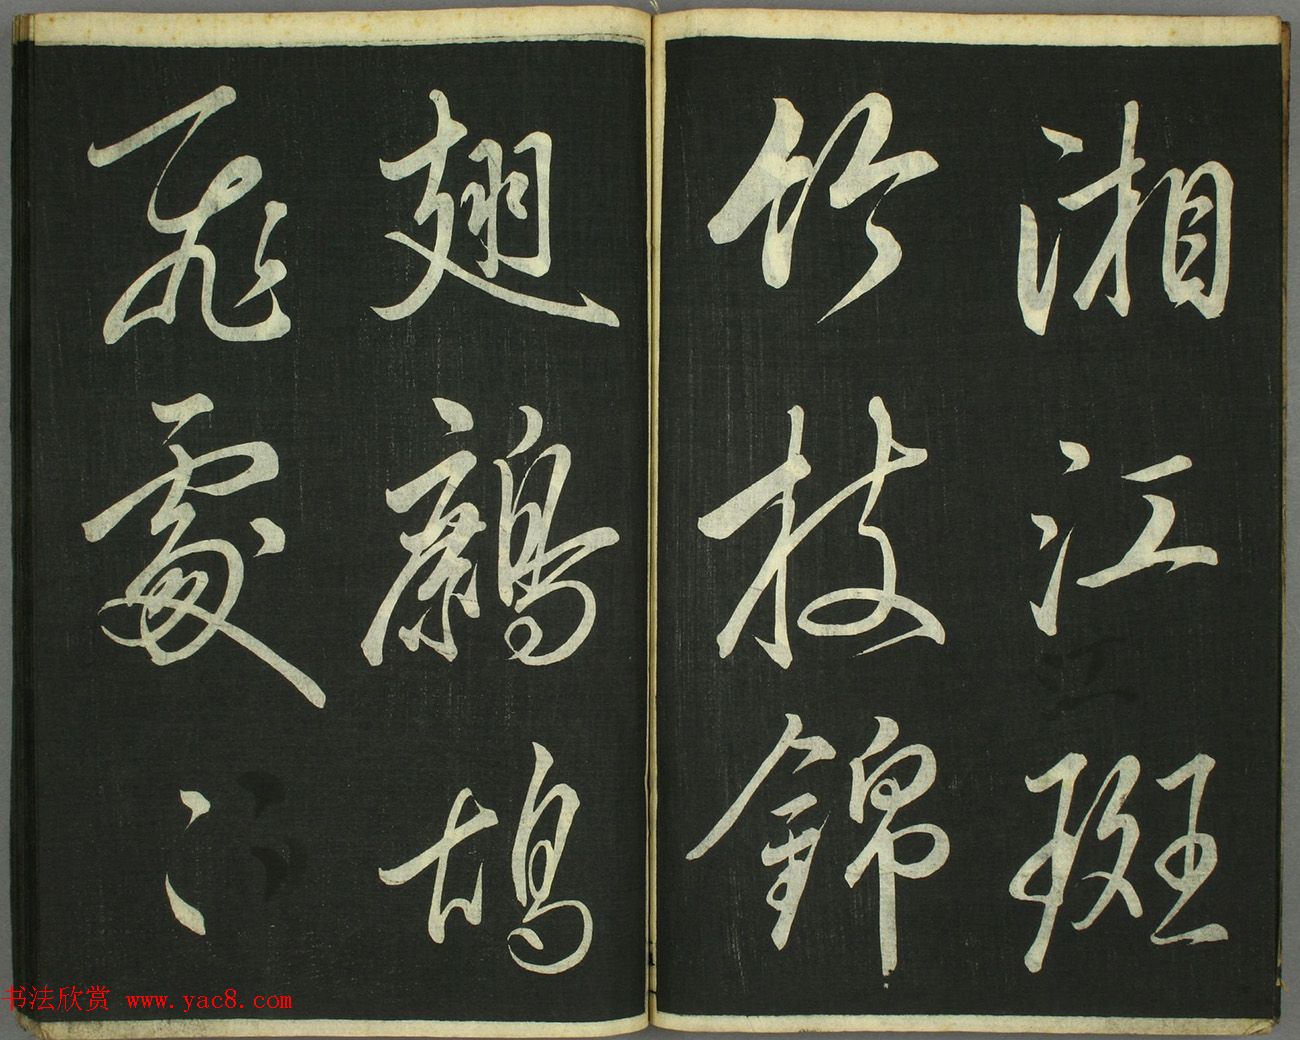 湘江斑
竹枝錦
翅鷓鴣
飛處〻
书法欣赏 www.yac8.com